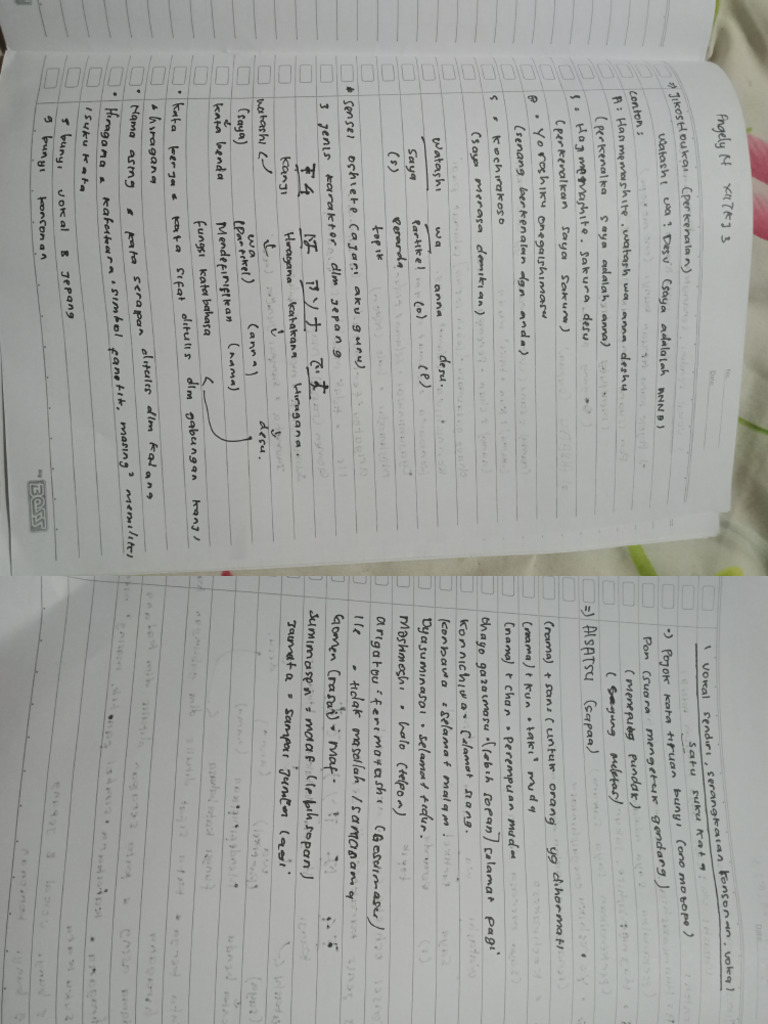 Angely N XII TKJ 3
=> JIKOSHOUKAI (perkenalan)
Watashi wa? Desu (saya adalah ANNA)
conton :
A : Hasimemashite, watashi wa anna deshu
(perkenalka saya adalah anna)
S : Hagimemashite. sakura desu
(perkenalkan saya sakura)
Yoroshiku onegaishimasu
(senang berkenalan dgn anda)
S : kochirakoso
(saya merasa demikian)
Watashi wa anna desu.
Saya partikel (o) (P)
(S) penanda
topik
* Sensei oshiete (ajari aku guru)
3 jenis karakter dlm jepang
は アンナ です
kanji Hiragana katakana Hiragana.
watashi wa (anna) desu.
(saya) (partikel) (nama)
kata benda Mendefinisikan
fungsi katabahasa
• kata kerja & kata sifat ditulis dlm gabungan kanji
& hiragana
• Nama asing & kata serapan ditulis dlm katang
• Hiragana & katakana, simbol fanetik, masing² memiliki
1 suku kata
5 bunyi vokal B jepang
9 bunyi konsonan
BOSS
1 vokal sendiri, serangkaian konsonan, vokal
satu suku kata
•) Pojok kata tiruan bunyi (onomatope)
Pon (suara mengetuk gendang)
(menepuk pundak)
=) AISATSU (sapaa)
(nama) + san : (untuk orang yg dihormati
(nama) + kun : laki² muda
(nama) + chan : perempuan muda
ohayo gozaimasu : (lebih sopan) selamat pagi
konnichiwa : selamat siang.
konbawa : selamat malam.
Oyasuminasai : selamat tidur.
Moshimoshi : halo (telpon)
arigatou : terimakashi (Gosaimasu)
Iie : tidak masallah / samasama
Gomen (nasai) : maf.
sumimasen : maaf (lebih sopan)
jamata : sampai jumpa lagi